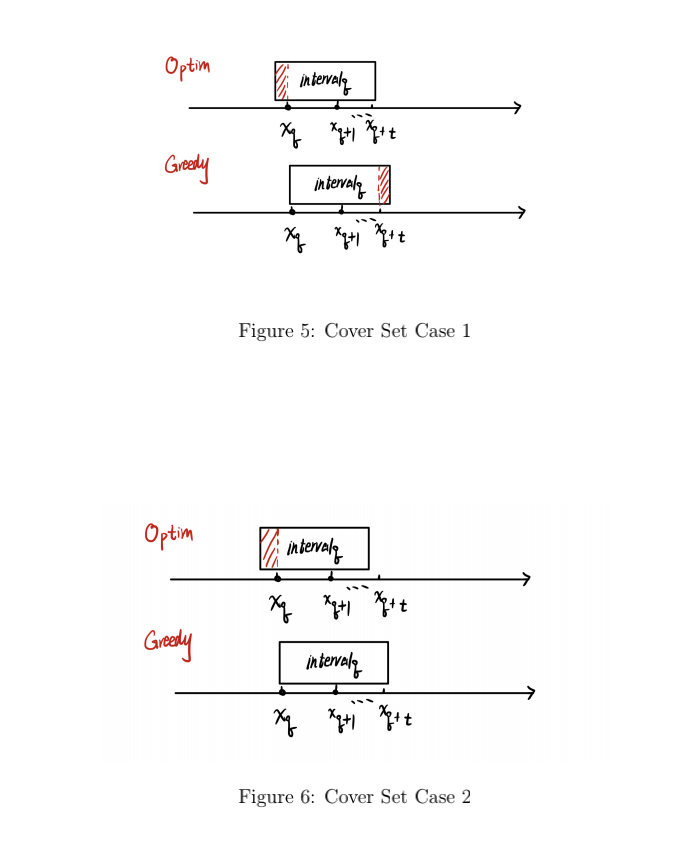 Optim
interval_q
x_q x_q+1 ... x_q+t
Greedy
interval_q
x_q x_q+1 ... x_q+t
Figure 5: Cover Set Case 1
Optim
interval_q
x_q x_q+1 ... x_q+t
Greedy
interval_q
x_q x_q+1 ... x_q+t
Figure 6: Cover Set Case 2